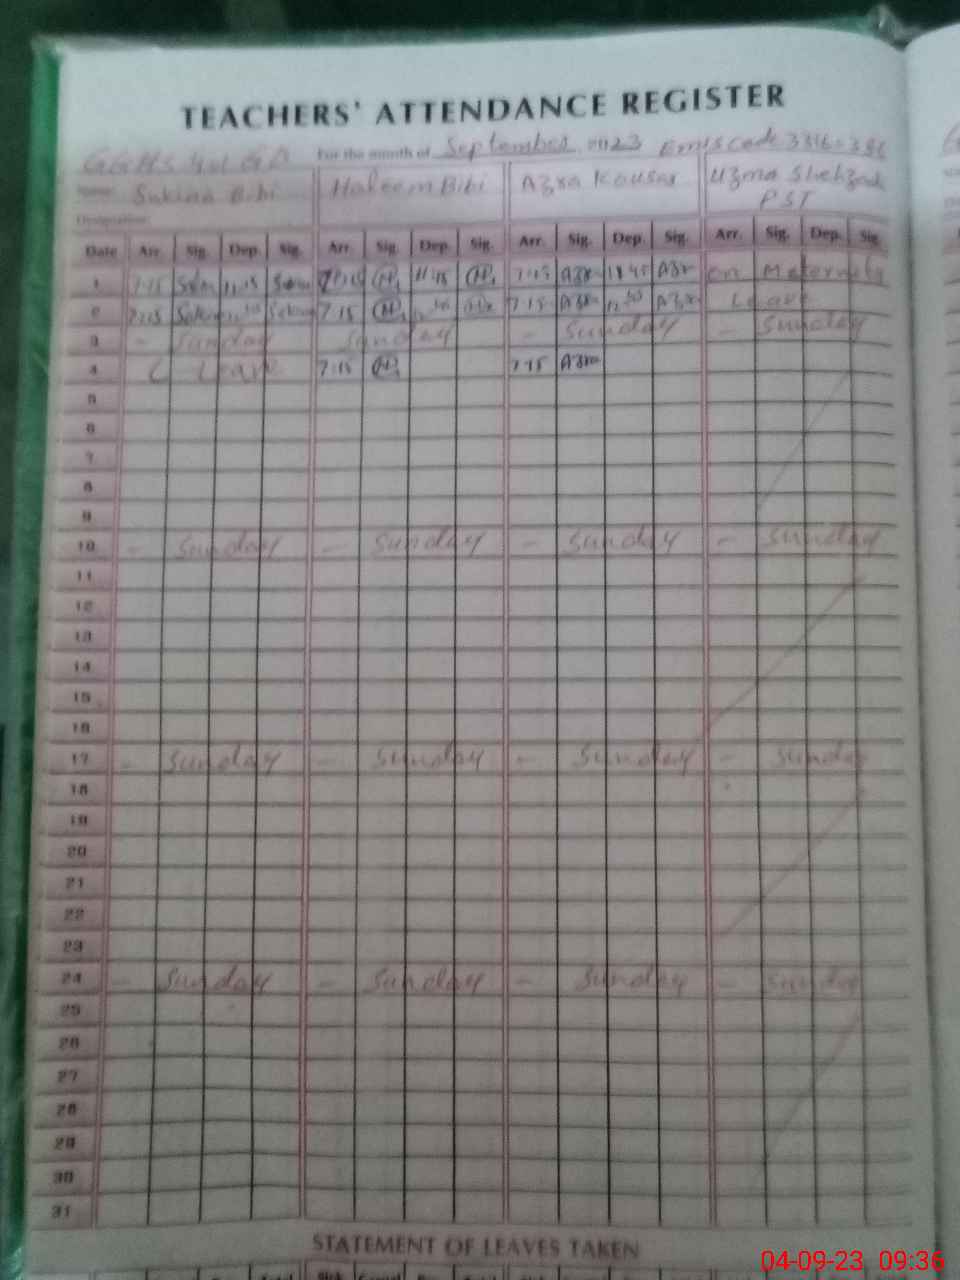 TEACHERS' ATTENDANCE REGISTER
For the month of September 2023 Emis Code
Name: Sakina Bibi Haleem Bibi Azra Kousar Uzma Shehzadi
Designation: PST
Date Arr. Sig. Dep. Sig. Arr. Sig. Dep. Sig. Arr. Sig. Dep. Sig. Arr. Sig. Dep. Sig.
1 7:15 11:45 7:15 Azra 11:45 Azra on Maternity
2 7:15 7:15 7:15 Azra Azra Leave
3 - Sunday Sunday - Sunday - Sunday
4 Leave 7:15 7:15 Azra
5
6
7
8
9
10 - Sunday - Sunday - Sunday - Sunday
11
12
13
14
15
16
17 - Sunday - Sunday - Sunday - Sunday
18
19
20
21
22
23
24 - Sunday - Sunday - Sunday - Sunday
25
26
27
28
29
30
31
STATEMENT OF LEAVES TAKEN
04-09-23 09:36